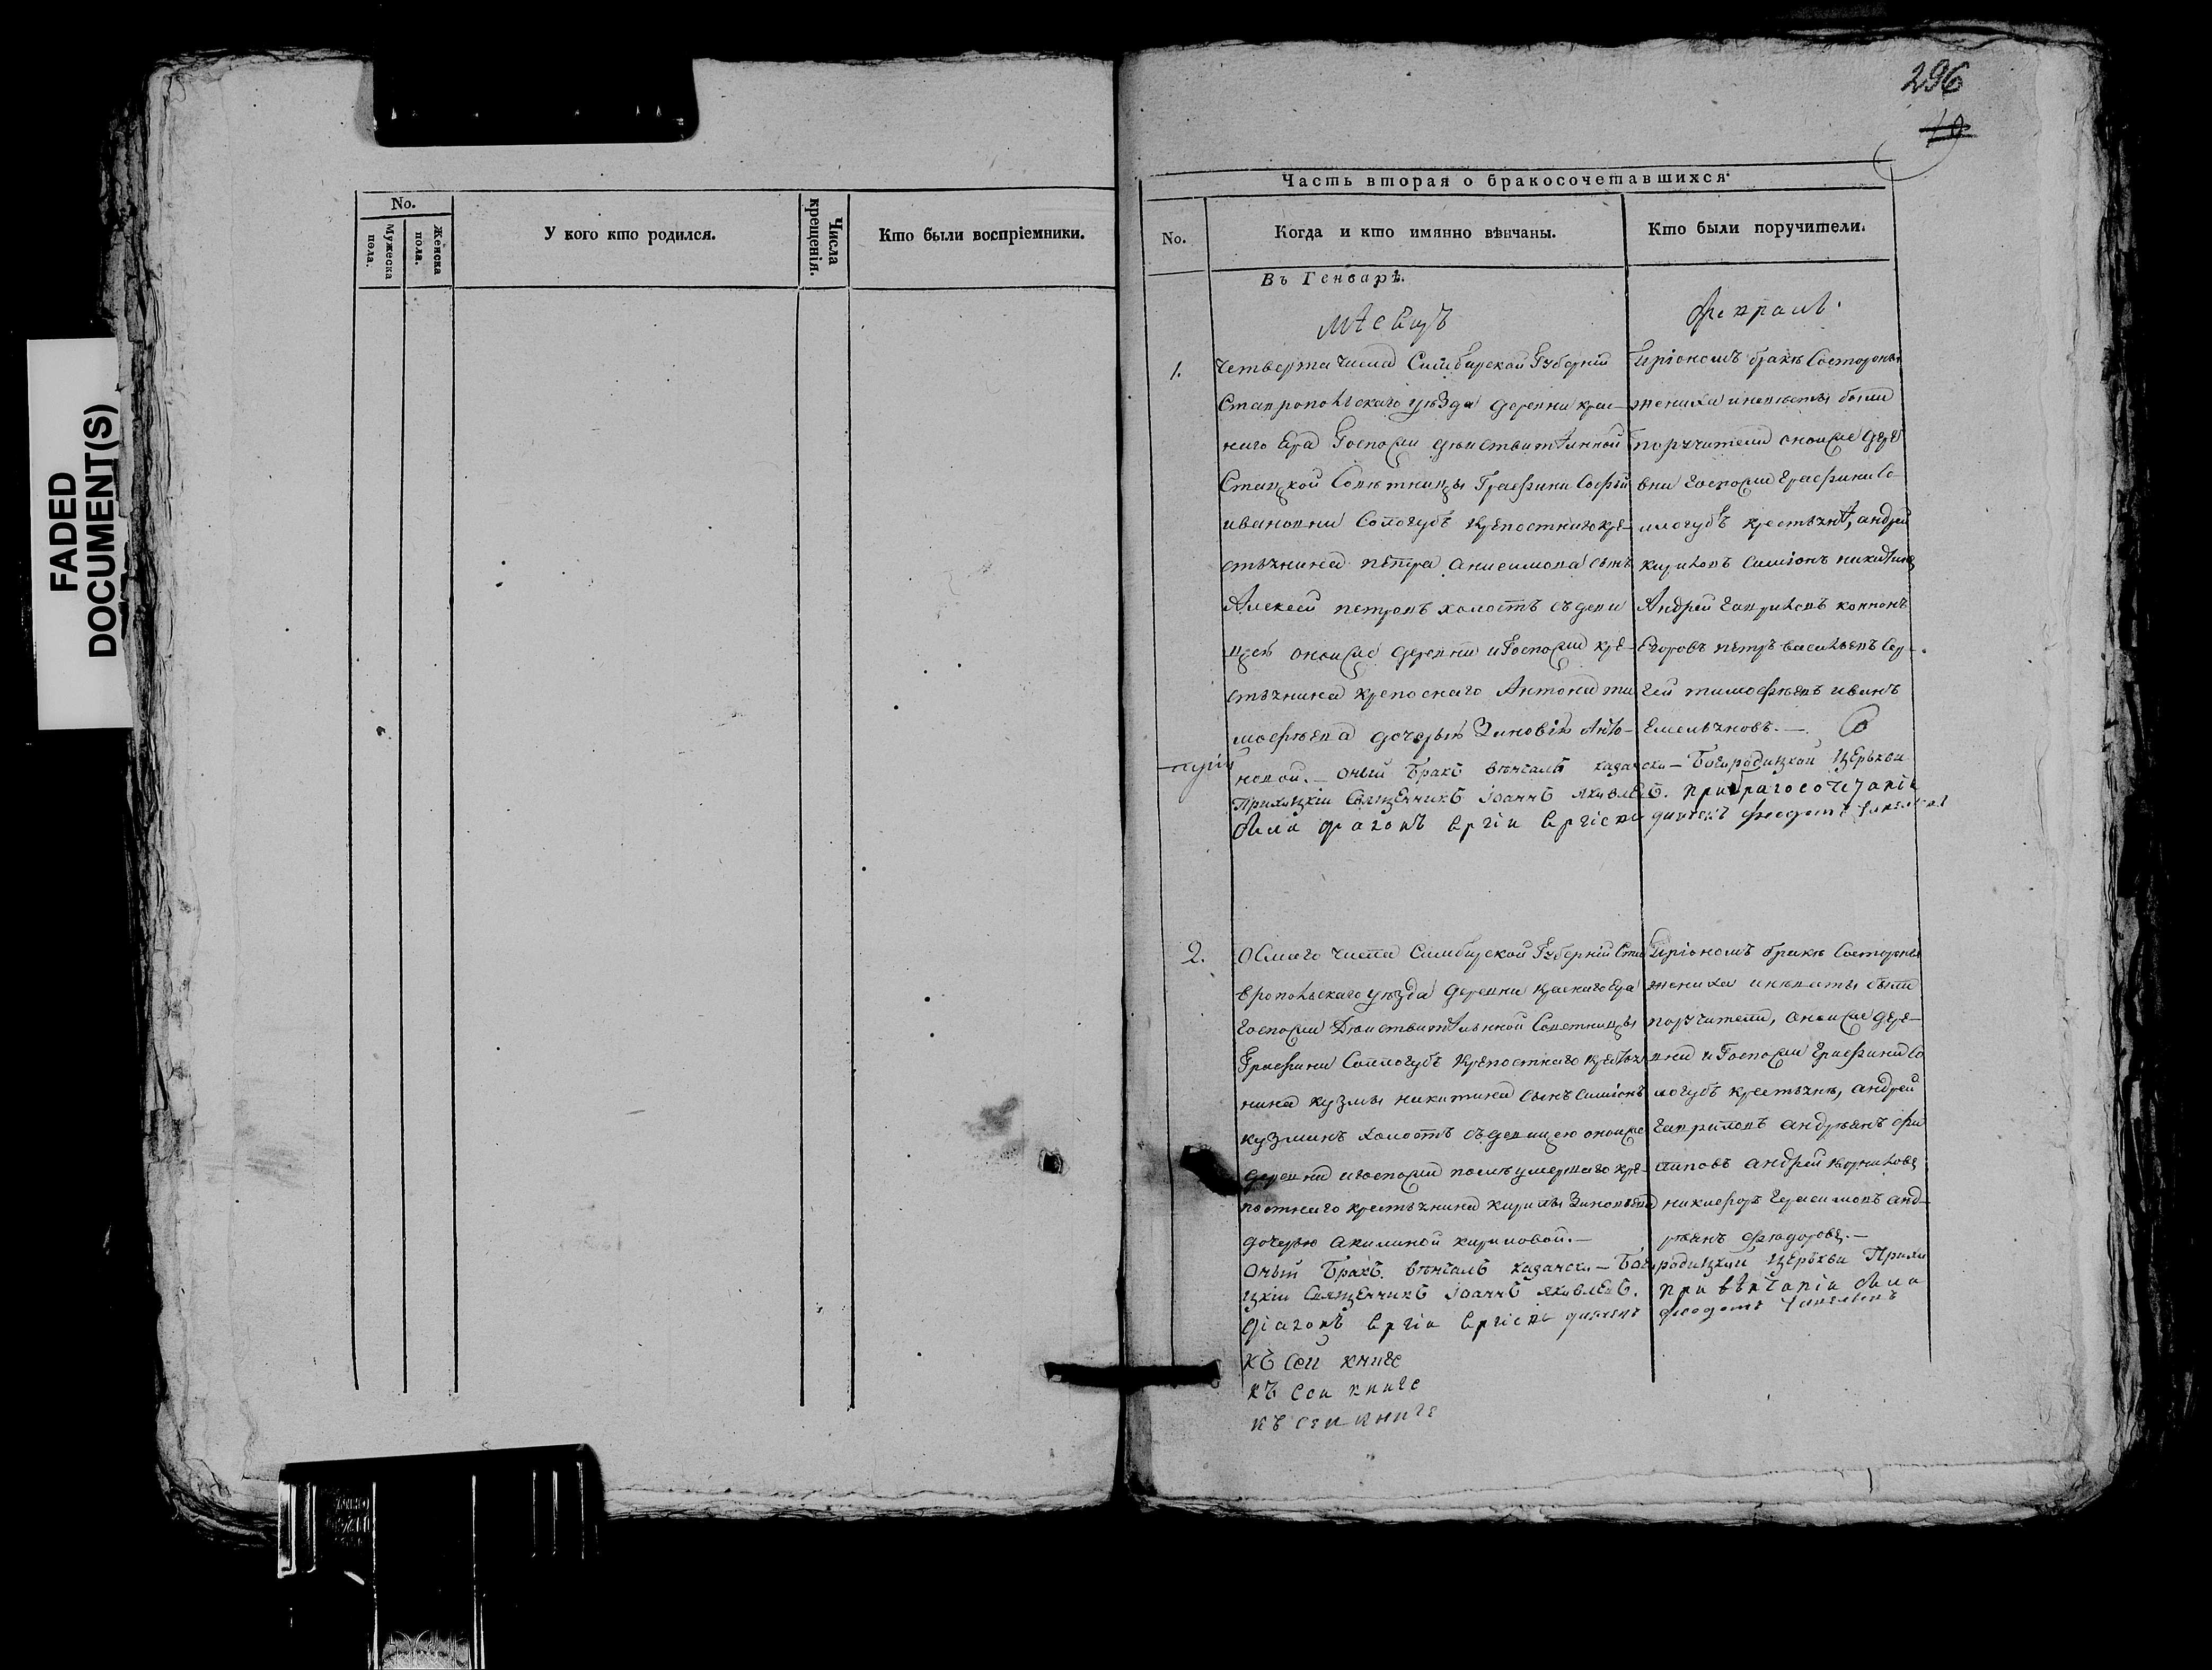 FADED
DOCUMENT(S)
No.
Мужеска пола.
Женска пола.
У кого кто родился.
Числа крещенія.
Кто были воспріемники.
296
Часть вторая о бракосочетавшихся.
No.
Когда и кто имянно вѣнчаны.
Кто были поручители.
Въ Генварѣ.
1.
Четверта числа Симбирской Губерніи
Ставропольскаго уѣзда деревни крас-
наго Яра Госпожи дѣиствитѣлнной
Стацкой Совѣтницы Графини Софьи
ивановны Сологубъ крѣпостнаго кре-
стьянина петра анисимова сынъ
Алексей петровъ холостъ съ деви
цей оной же деревни и Госпожи кре-
стьянина крепоснаго Антона ти
мофѣева дочерью Зиновію Анто-
новой. — оный Бракъ вѣнчалъ казанско-
Приходскіи Священникъ Іоаннъ Яковлевъ.
При ономъ бракѣ Состороны
жениха и невѣсты были
поручители оной же дере
вни госпожи Графини Со
ллогубъ крестьянѣ, андрей
кириловъ Симіонъ никитинъ
Андрей Гавриловъ
Егоровъ петръ васильевъ Сер-
гѣй тимофѣевъ иванъ
Емельяновъ. —
Богородицкой церькви
2.
Осмаго числа Симбирской Губерніи Ста
вропольскаго уѣзда деревни краснаго Яра
госпожи Дѣиствитѣльнной Советницы
Графини Соллогубъ Крѣпостнаго крестья
нина кузмы никитина сынъ Симіонъ
кузминъ холостъ съ девицею оной же
деревни и госпожи послѣ умершаго кре-
постнаго крестьянина кирилы Зиновьева
дочерью акилиной кириловой. —
Оный Бракъ. вѣнчалъ казанско-Бого
цкіи Священникъ Іоаннъ Яковлевъ.
При ономъ бракѣ Состороны
жениха и невѣсты были
поручители, оной же дере-
вни и Госпожи Графини Со
логубъ крестьянѣ, андрей
гавриловъ андрѣянъ фи
липовъ андрей
никифоръ Герасимовъ анд-
рѣянъ Фіодоровъ. —
родицкой церькви Прихо
при вѣнчаніи
къ сей книге
къ сеи книге
къ сеи книге